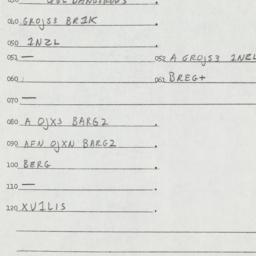 040 GROJS3 BR1K
050 INZL
051 —
052 A GROJS3 INZL
060
061 BREG+
070 —
080 A OJX3 BARG2
090 AFN OJXN BARG2
100 BERG
110 —
120 XV1LIS